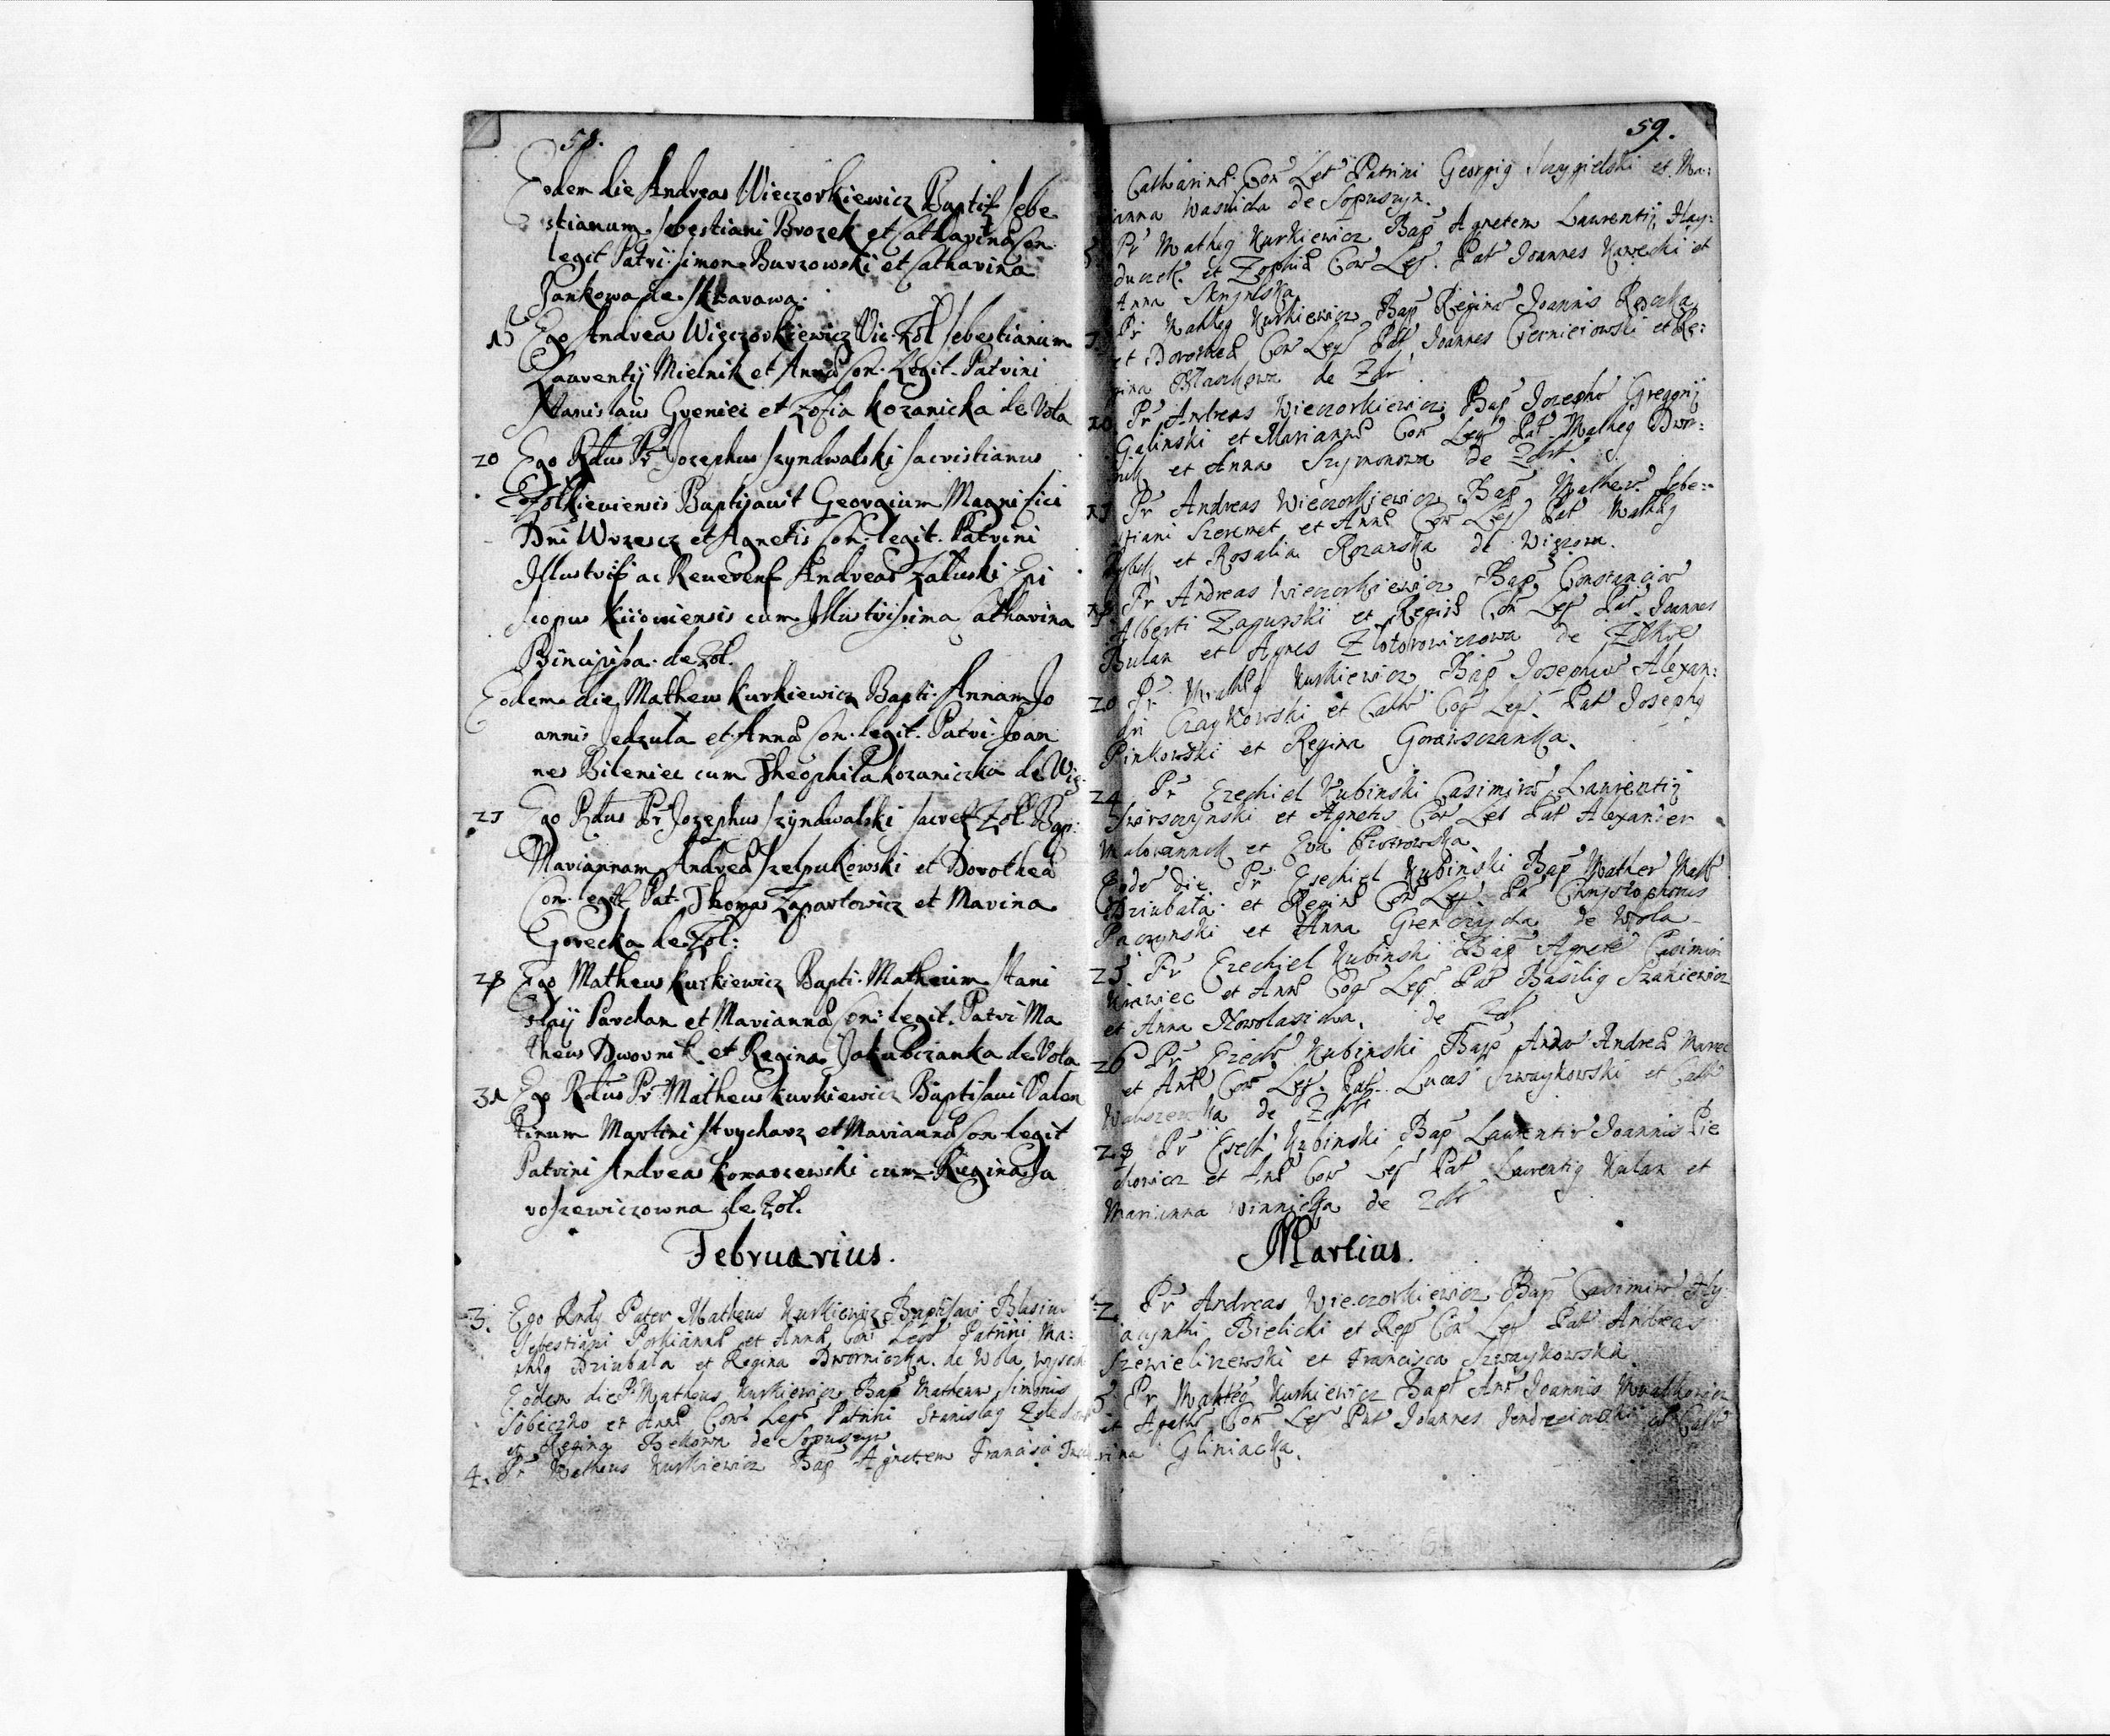 58.
Eodem die Andreas Wieczorkiewicz Baptis Sebe
stianum Sebestiani Brozek et Catharinæ Con
legit Patri: Simon Burzowski et Catharina
Jankowa de Skwarawa.
15 Ego Andrea Wieczorkiewicz Vic. Zol Sebestianum
Laurentij Mielnik et Annæ Con. Legit. Patrini
Stanislaus Greniei et Zofia Kozanicka de Vola
20 Ego Rdus Pr Jozephus Szyndwalski Sacristianus
Zolkieviensis Baptisavit Georgium Magnifici
Dni Wrzescz et Agnetis Con. legit. Patrini
Illustris ac Reverens Andreas Zaluski Epi
scopus Kiioviensis cum Illustrissima Catharina
Principissa de Zol.
Eodem die Matheus Kurkiewicz Bapti. Annam Jo
annis Jedzula et Annæ Con. legit. Patri. Joan
nes Bileniec cum Theophila Kozaniczka de Wie
27 Ego Rdus Pr Jozephus Szyndwalski Sacres Zol Bap:
Mariannam Andreæ Szelpukowski et Dorotheæ
Con. legit Pat. Thomas Zaparlowicz et Marina
Gorecka de Zol:
28 Ego Matheus Kurkiewicz Bapti. Matheum Stani
slaij Parchan et Mariannæ Con: legit. Patri Ma
theus Dwornik et Regina Jakubczanka de Vola
31 Ego Rdus Pr Matheus Kurkiewicz Baptisavi Valen
tinum Martini Strycharz et Mariannæ Con legit
Patrini Andreas Komarzewski cum Regina Ja
roszewiczowna de Zol.
Februarius.
3. Ego Rndg Pater Matheus Kurkiewicz Baptisavi Blasiu
Sebestiani et Annæ Con Legt Patrini Ma:
theg Dziubata et Regina Dworniczka de Wola
Eodem die Pr Matheus Kurkiewicz Bap Matheum Simonis
Sobeczko et Annæ Con Legt Patrini Stanislag
et Regina Bekowa de Sopuszyn
4. Pr Matheus Kurkiewicz Bap Agnetem Francisci
59.
Catharinæ Con Let Patrini Georgig Szczygielski et Ma:
rianna Wasnicka de Sopuszyn.
Pr Matheg Kurkiewicz Bap Agnetem Laurentij Hay:
duczek et Zophiæ Con Leg. Pat Joannes Kawecki et
Anna
Pr Matheg Kurkiewicz Bap Regina Joannis
et Dorotheæ Con Leg Pat Joannes Czerniejowski et Re:
gina Blaszkowa de Zol
Pr Andreas Wieczorkiewicz Bap Jozeph Gregorij
Galinski et Mariannæ Con Leg Pat Matheg Dwor:
nik et Anna Szymonowa de Zol.
17 Pr Andreas Wieczorkiewicz Bap Mathew Sebe:
stiani Szeremet et Annæ Con Leg Pat Matheg
et Rosalia Rozanska de Wiezowa.
Pr Andreas Wieczorkiewicz Bap Constancia
Alberti Zagurski et Reginæ Con Leg Pat Joannes
Bulan et Agnes Zlotorowiczowa de Zolkwe
20 Pr Matheg Kurkiewicz Bap Josephus Alexan:
dri Czaykowski et Cath Cog Leg Pat Josephg
Pinkowski et Regina
24 Pr Ezechiel Kubinski Casimiru Laurentij
Swirsczynski et Agnetis Con Let Pat Alexander
et Eva Piotrowska
Eode die Pr Ezechiel Kubinski Bap Mathew Math
Dziubata et Reginæ Con Leg Pat Christophorus
Paczynski et Anna de Wola
25 Pr Ezechiel Kubinski Bap Agnete Casimiri
Krawiec et Annæ Cog Leg Pat Basilig Szaniewicz
et Anna Nowolasicka de Zol
26 Pr Ezech Kubinski Bap Anna Andreæ
et Annæ Con Leg. Pat. Lucas Szwaykowski et Cath
de Zol
28 Pr Ezech Kubinski Bap Laurentiu Joannis Pie
chowicz et Annæ Con Leg Pat Laurentig Kulan et
Marianna Winnicka de Zol
Martius.
2. Pr Andreas Wieczorkiewicz Bap Casimiru Hy
acynthi Bielicki et Reg Con Leg Pat Andreas
Szewieliszewski et Francisca Szwaykowska
Pr Matheg Kurkiewicz Bapt Ann Joannis
et Agathæ Con Leg Pat Joannes Jendrzeiowski et Cath
rina Gliniacka.